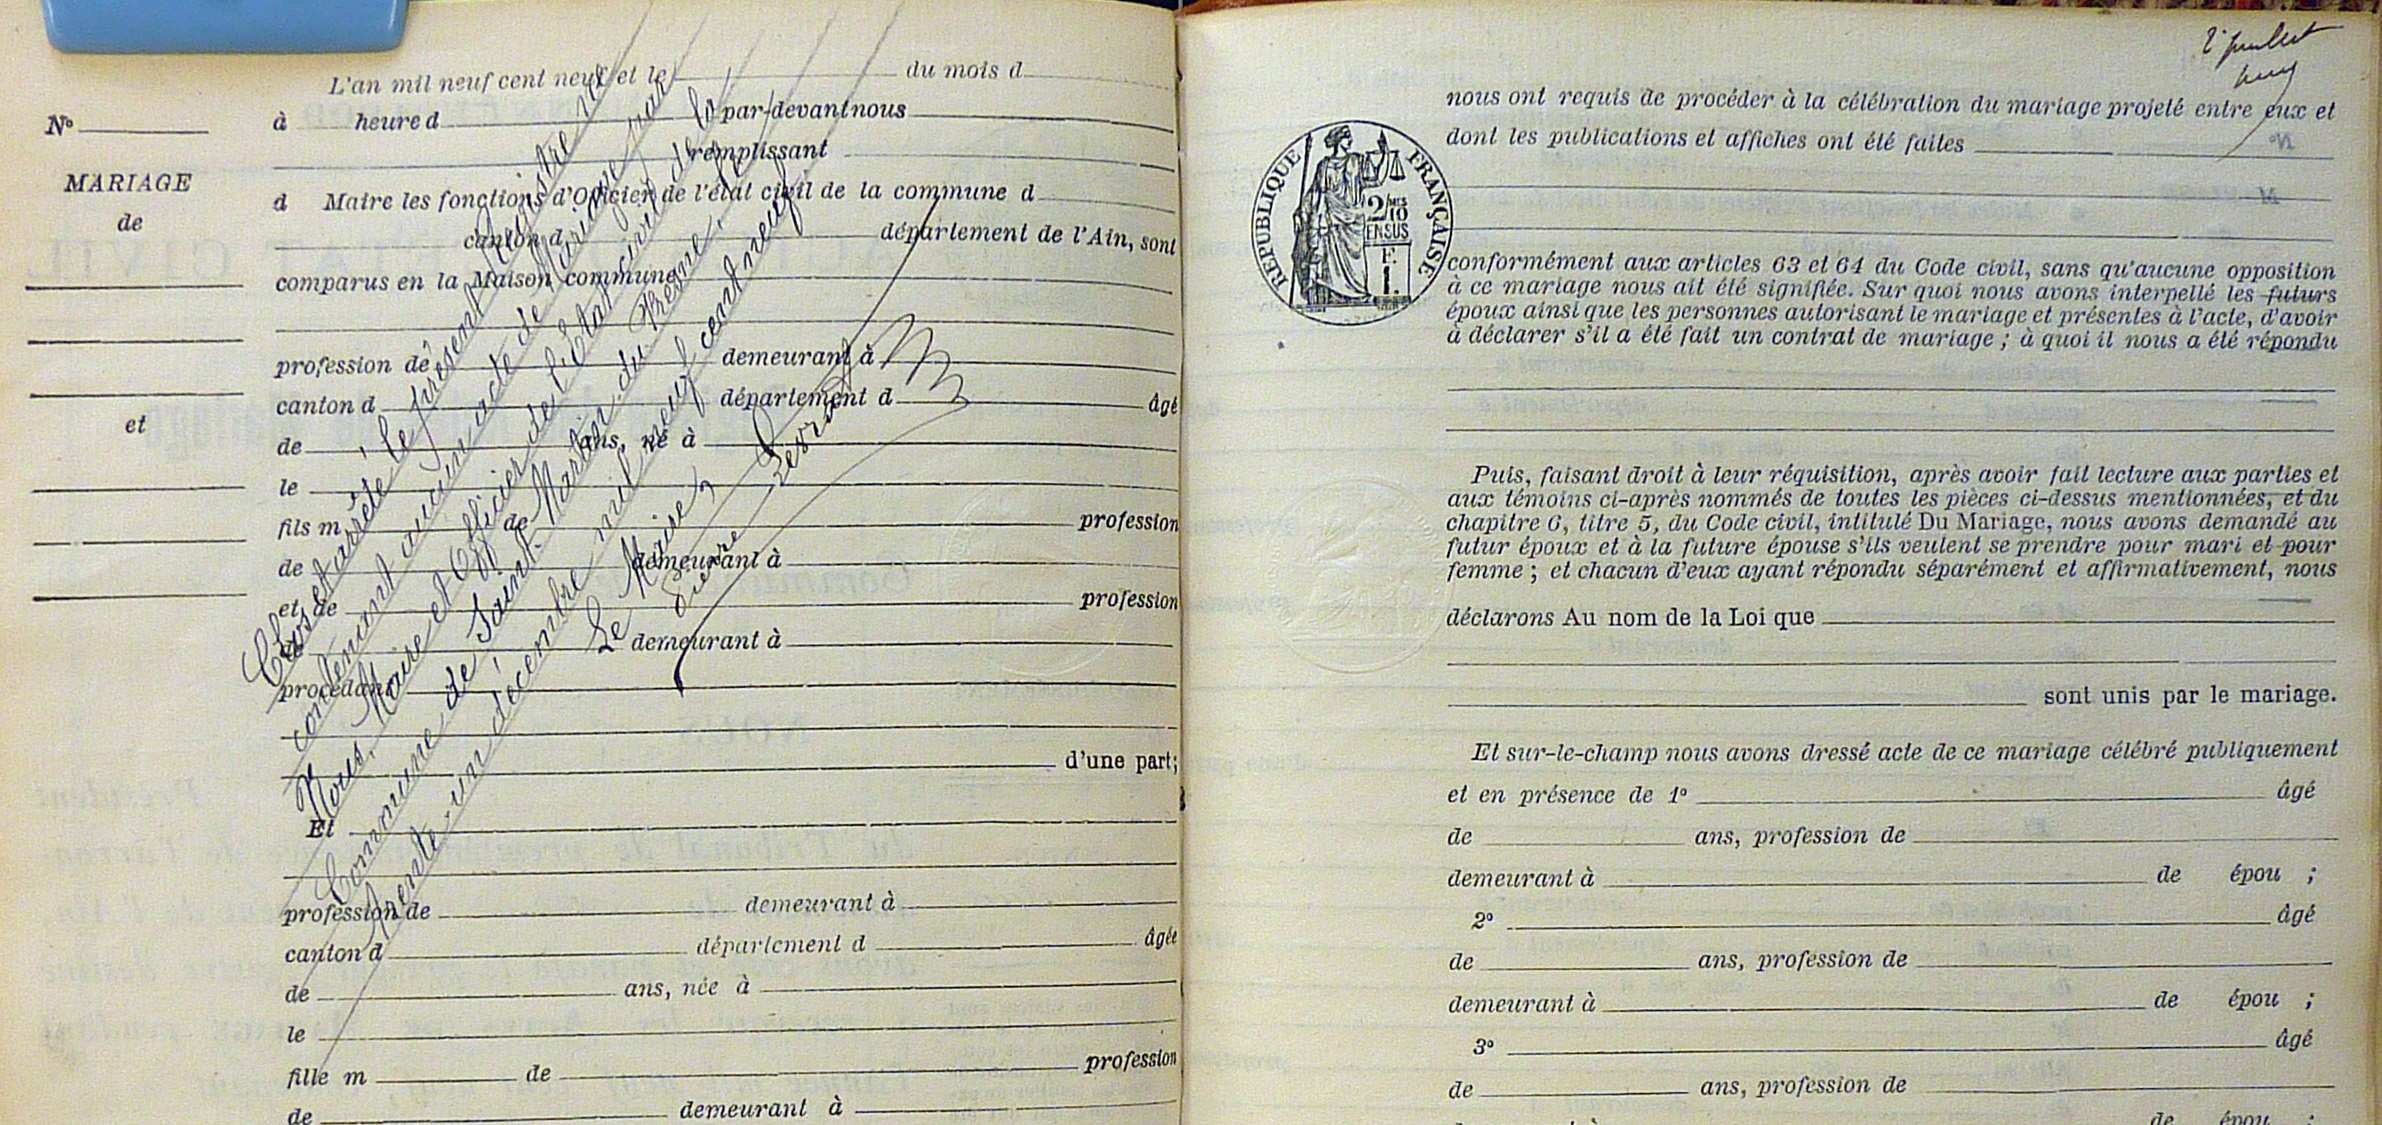 L'an mil neuf cent neuf et le du mois d
à heure d par-devant nous
remplissant
d Maire les fonctions d'Officier de l'état civil de la commune d
canton d département de l'Ain, sont
comparus en la Maison commune
profession de demeurant à
canton d département d âgé
de ans, né à
le
fils m de profession
de demeurant à
et de profession
de demeurant à
procédant
d'une part;
Et
profession de demeurant à
canton d département d âgée
de ans, née à
le
fille m de profession
de demeurant à
N°
MARIAGE
de
et
Clos et arrêté le présent Registre ne
contenant aucun acte de Mariage par
Nous, Maire et Officier de l'Etat civil de la
Commune de Saint-Martin du Fresne, le
trente-un décembre mil neuf cent neuf
Le Maire,
Pierre
nous ont requis de procéder à la célébration du mariage projeté entre eux et
dont les publications et affiches ont été faites
RÉPUBLIQUE FRANÇAISE
2/10
EN SUS
F.
1.
conformément aux articles 63 et 64 du Code civil, sans qu'aucune opposition
à ce mariage nous ait été signifiée. Sur quoi nous avons interpellé les futurs
époux ainsi que les personnes autorisant le mariage et présentes à l'acte, d'avoir
à déclarer s'il a été fait un contrat de mariage ; à quoi il nous a été répondu
Puis, faisant droit à leur réquisition, après avoir fait lecture aux parties et
aux témoins ci-après nommés de toutes les pièces ci-dessus mentionnées, et du
chapitre 6, titre 5, du Code civil, intitulé Du Mariage, nous avons demandé au
futur époux et à la future épouse s'ils veulent se prendre pour mari et pour
femme ; et chacun d'eux ayant répondu séparément et affirmativement, nous
déclarons Au nom de la Loi que
sont unis par le mariage.
Et sur-le-champ nous avons dressé acte de ce mariage célébré publiquement
et en présence de 1° âgé
de ans, profession de
demeurant à de épou ;
2° âgé
de ans, profession de
demeurant à de épou ;
3° âgé
de ans, profession de
de épou ;